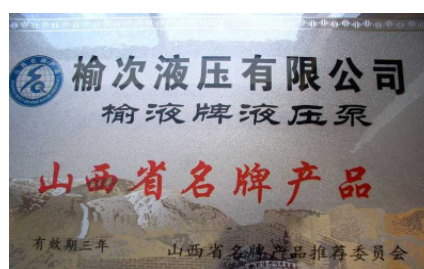 榆次液压有限公司
榆液牌液压泵
山西省名牌产品
有效期三年
山西省名牌产品推荐委员会